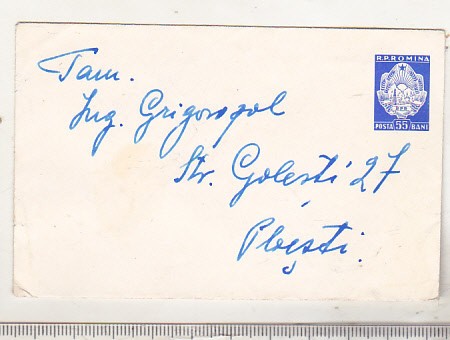 R.P.ROMINA
RPR
POSTA 55 BANI
Fam.
Ing. Grigoropol
Str. Golești 27
Ploești.